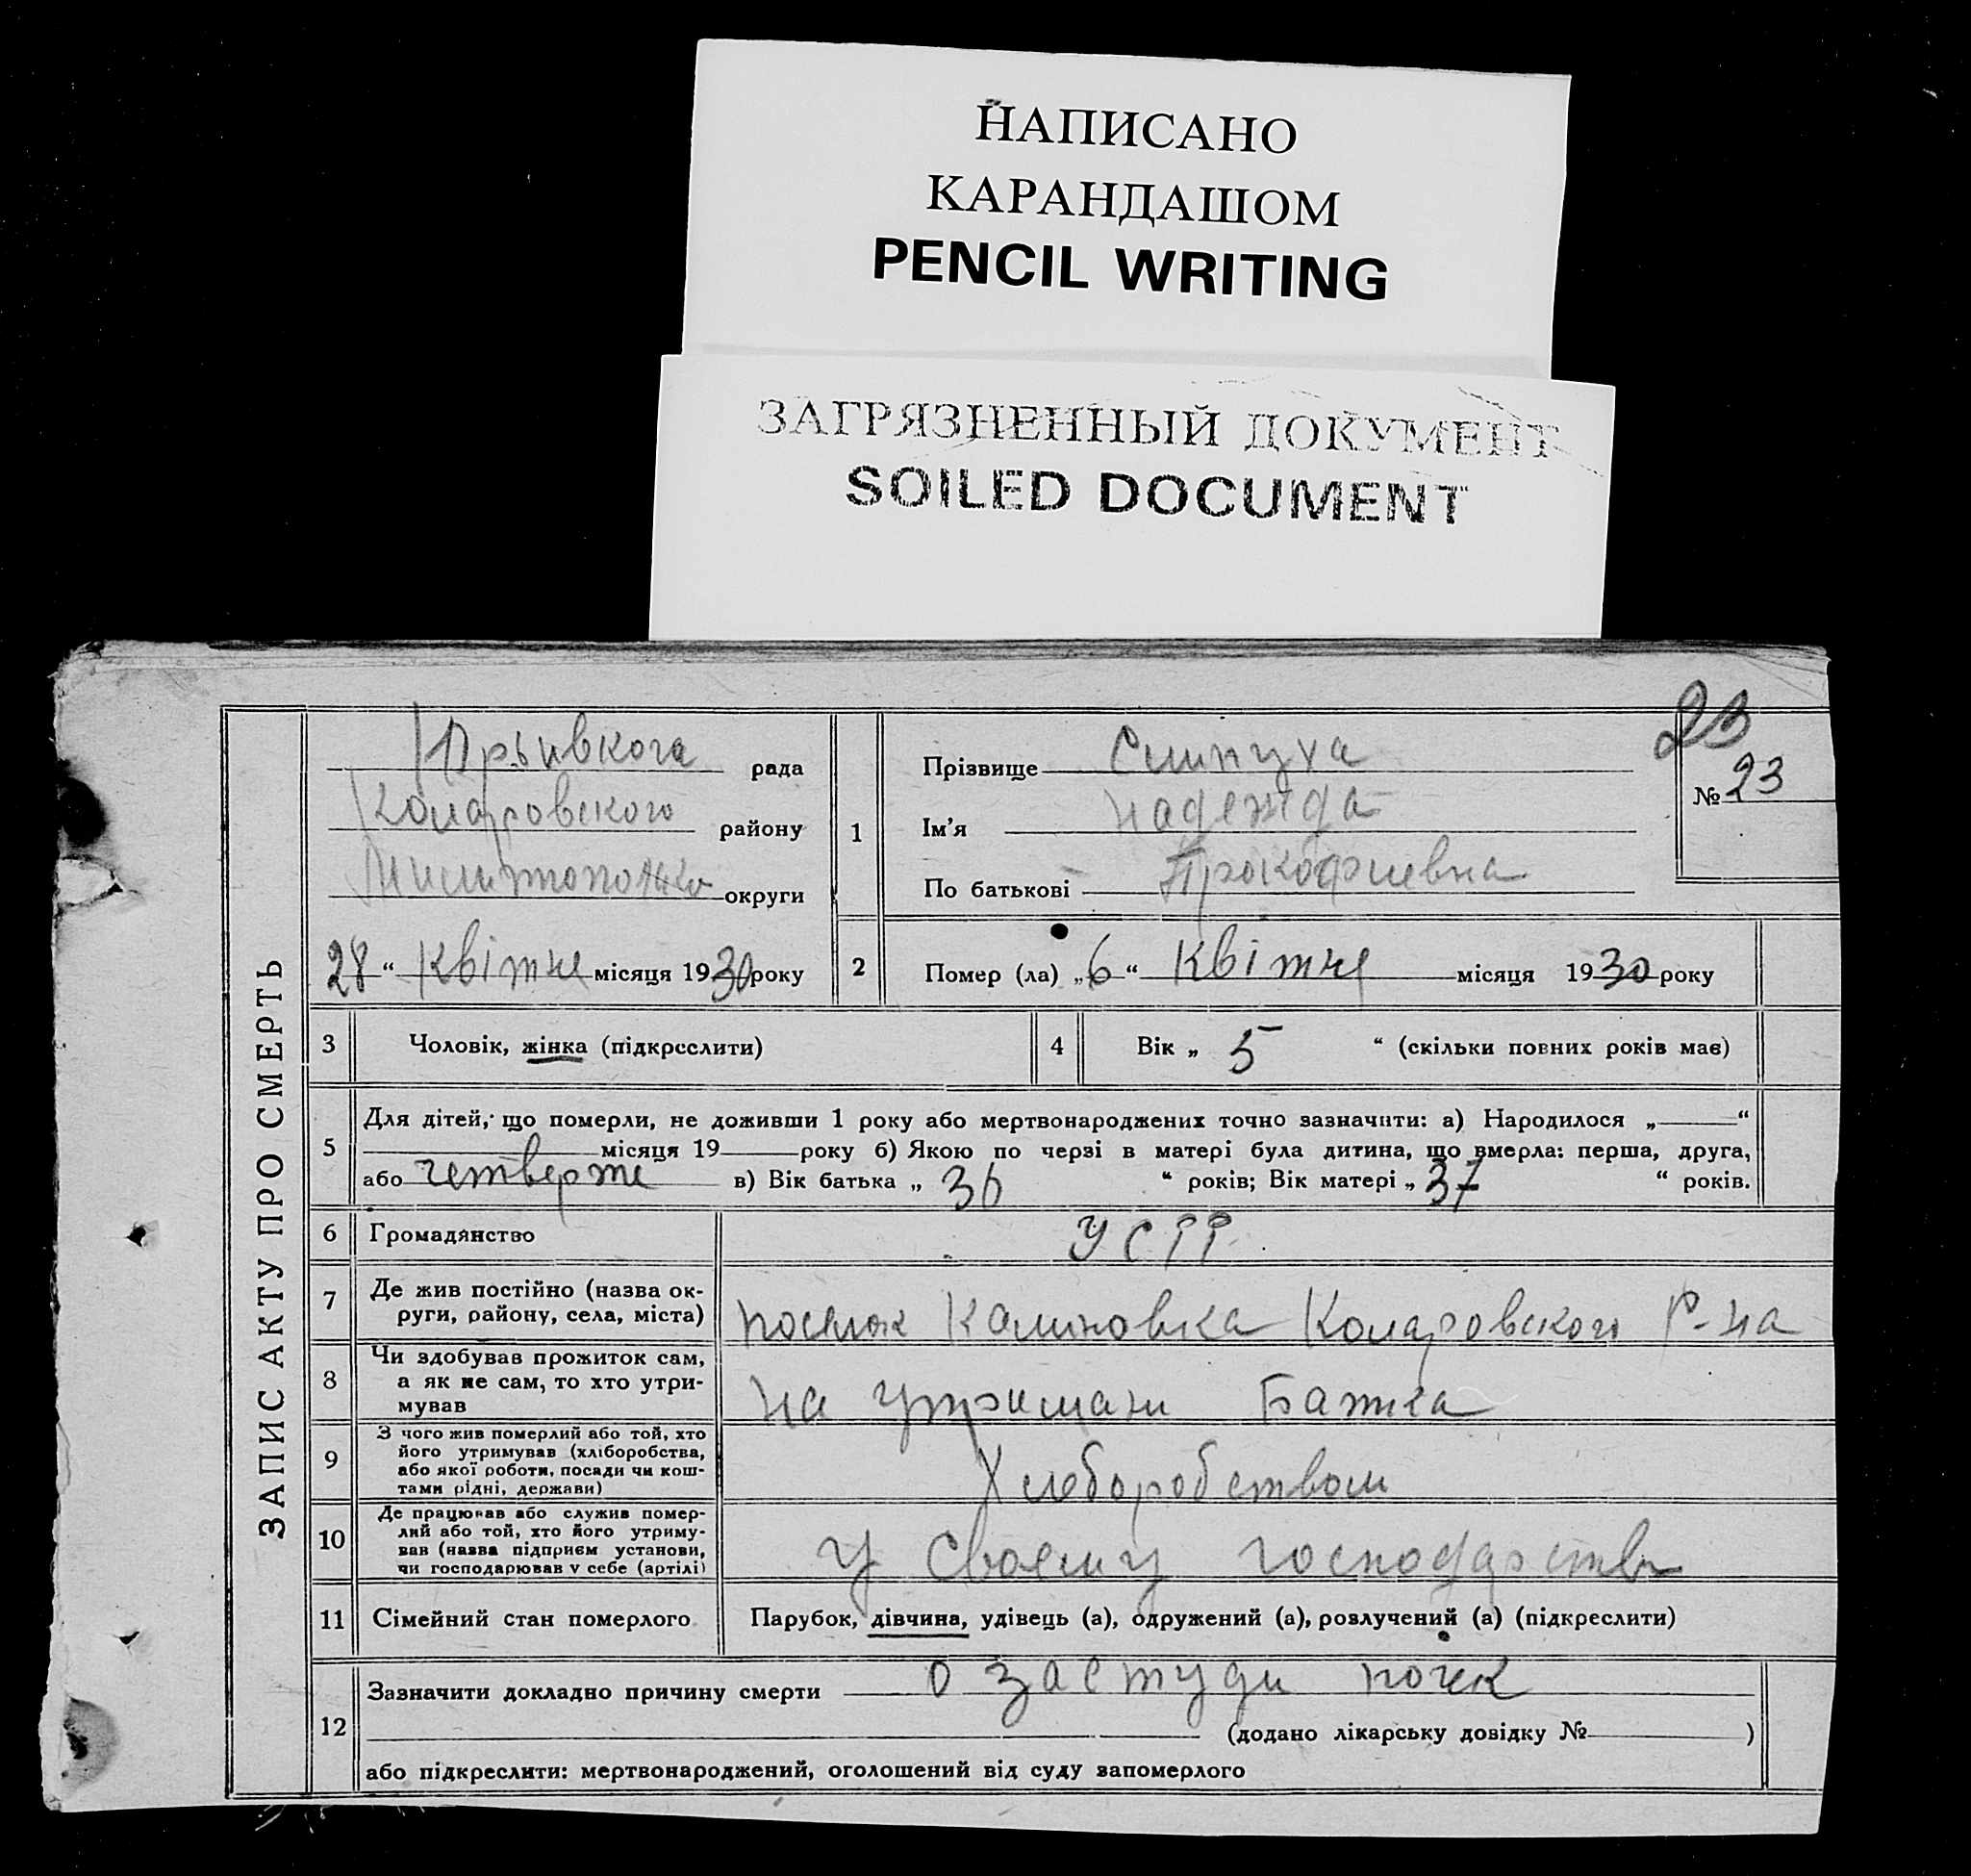 НАПИСАНО
КАРАНДАШОМ
PENCIL WRITING
ЗАГРЯЗНЕННЫЙ ДОКУМЕНТ
SOILED DOCUMENT
ЗАПИС АКТУ ПРО СМЕРТЬ
23
№ 23
Юрьивкога рада
Коларовского району
округи
28 “ Квітне місяця 1930 року
1
Прізвище
Ім’я Надежда
По батькові Прокофиевна
2 Помер (ла) „6“ Квітне місяця 1930 року
3 Чоловік, жінка (підкреслити)
4 Вік „ 5 “ (скільки повних років має)
5 Для дітей, що померли, не доживши 1 року або мертвонароджених точно зазначити: а) Народилося „ “
місяця 19 року б) Якою по черзі в матері була дитина, що вмерла: перша, друга,
або четверте в) Вік батька „ 36 “ років; Вік матері „ 37 “ років.
6 Громадянство УСРР
7 Де жив постійно (назва ок-
руги, району, села, міста) поселок Калиновка Коларовского р-на
8 Чи здобував прожиток сам,
а як не сам, то хто утри-
мував на утримани Батка
9 З чого жив померлий або той, хто
його утримував (хліборобства,
або якої роботи, посади чи кош-
тами рідні, держави) Хлеборобством
10 Де працював або служив помер-
лий або той, хто його утриму-
вав (назва підприєм установи,
чи господарював у себе (артілі) У своему господарстви
11 Сімейний стан померлого Парубок, дівчина, удівець (а), одружений (а), розлучений (а) (підкреслити)
12 Зазначити докладно причину смерти о застуди почек
(додано лікарську довідку № )
або підкреслити: мертвонароджений, оголошений від суду запомерлого